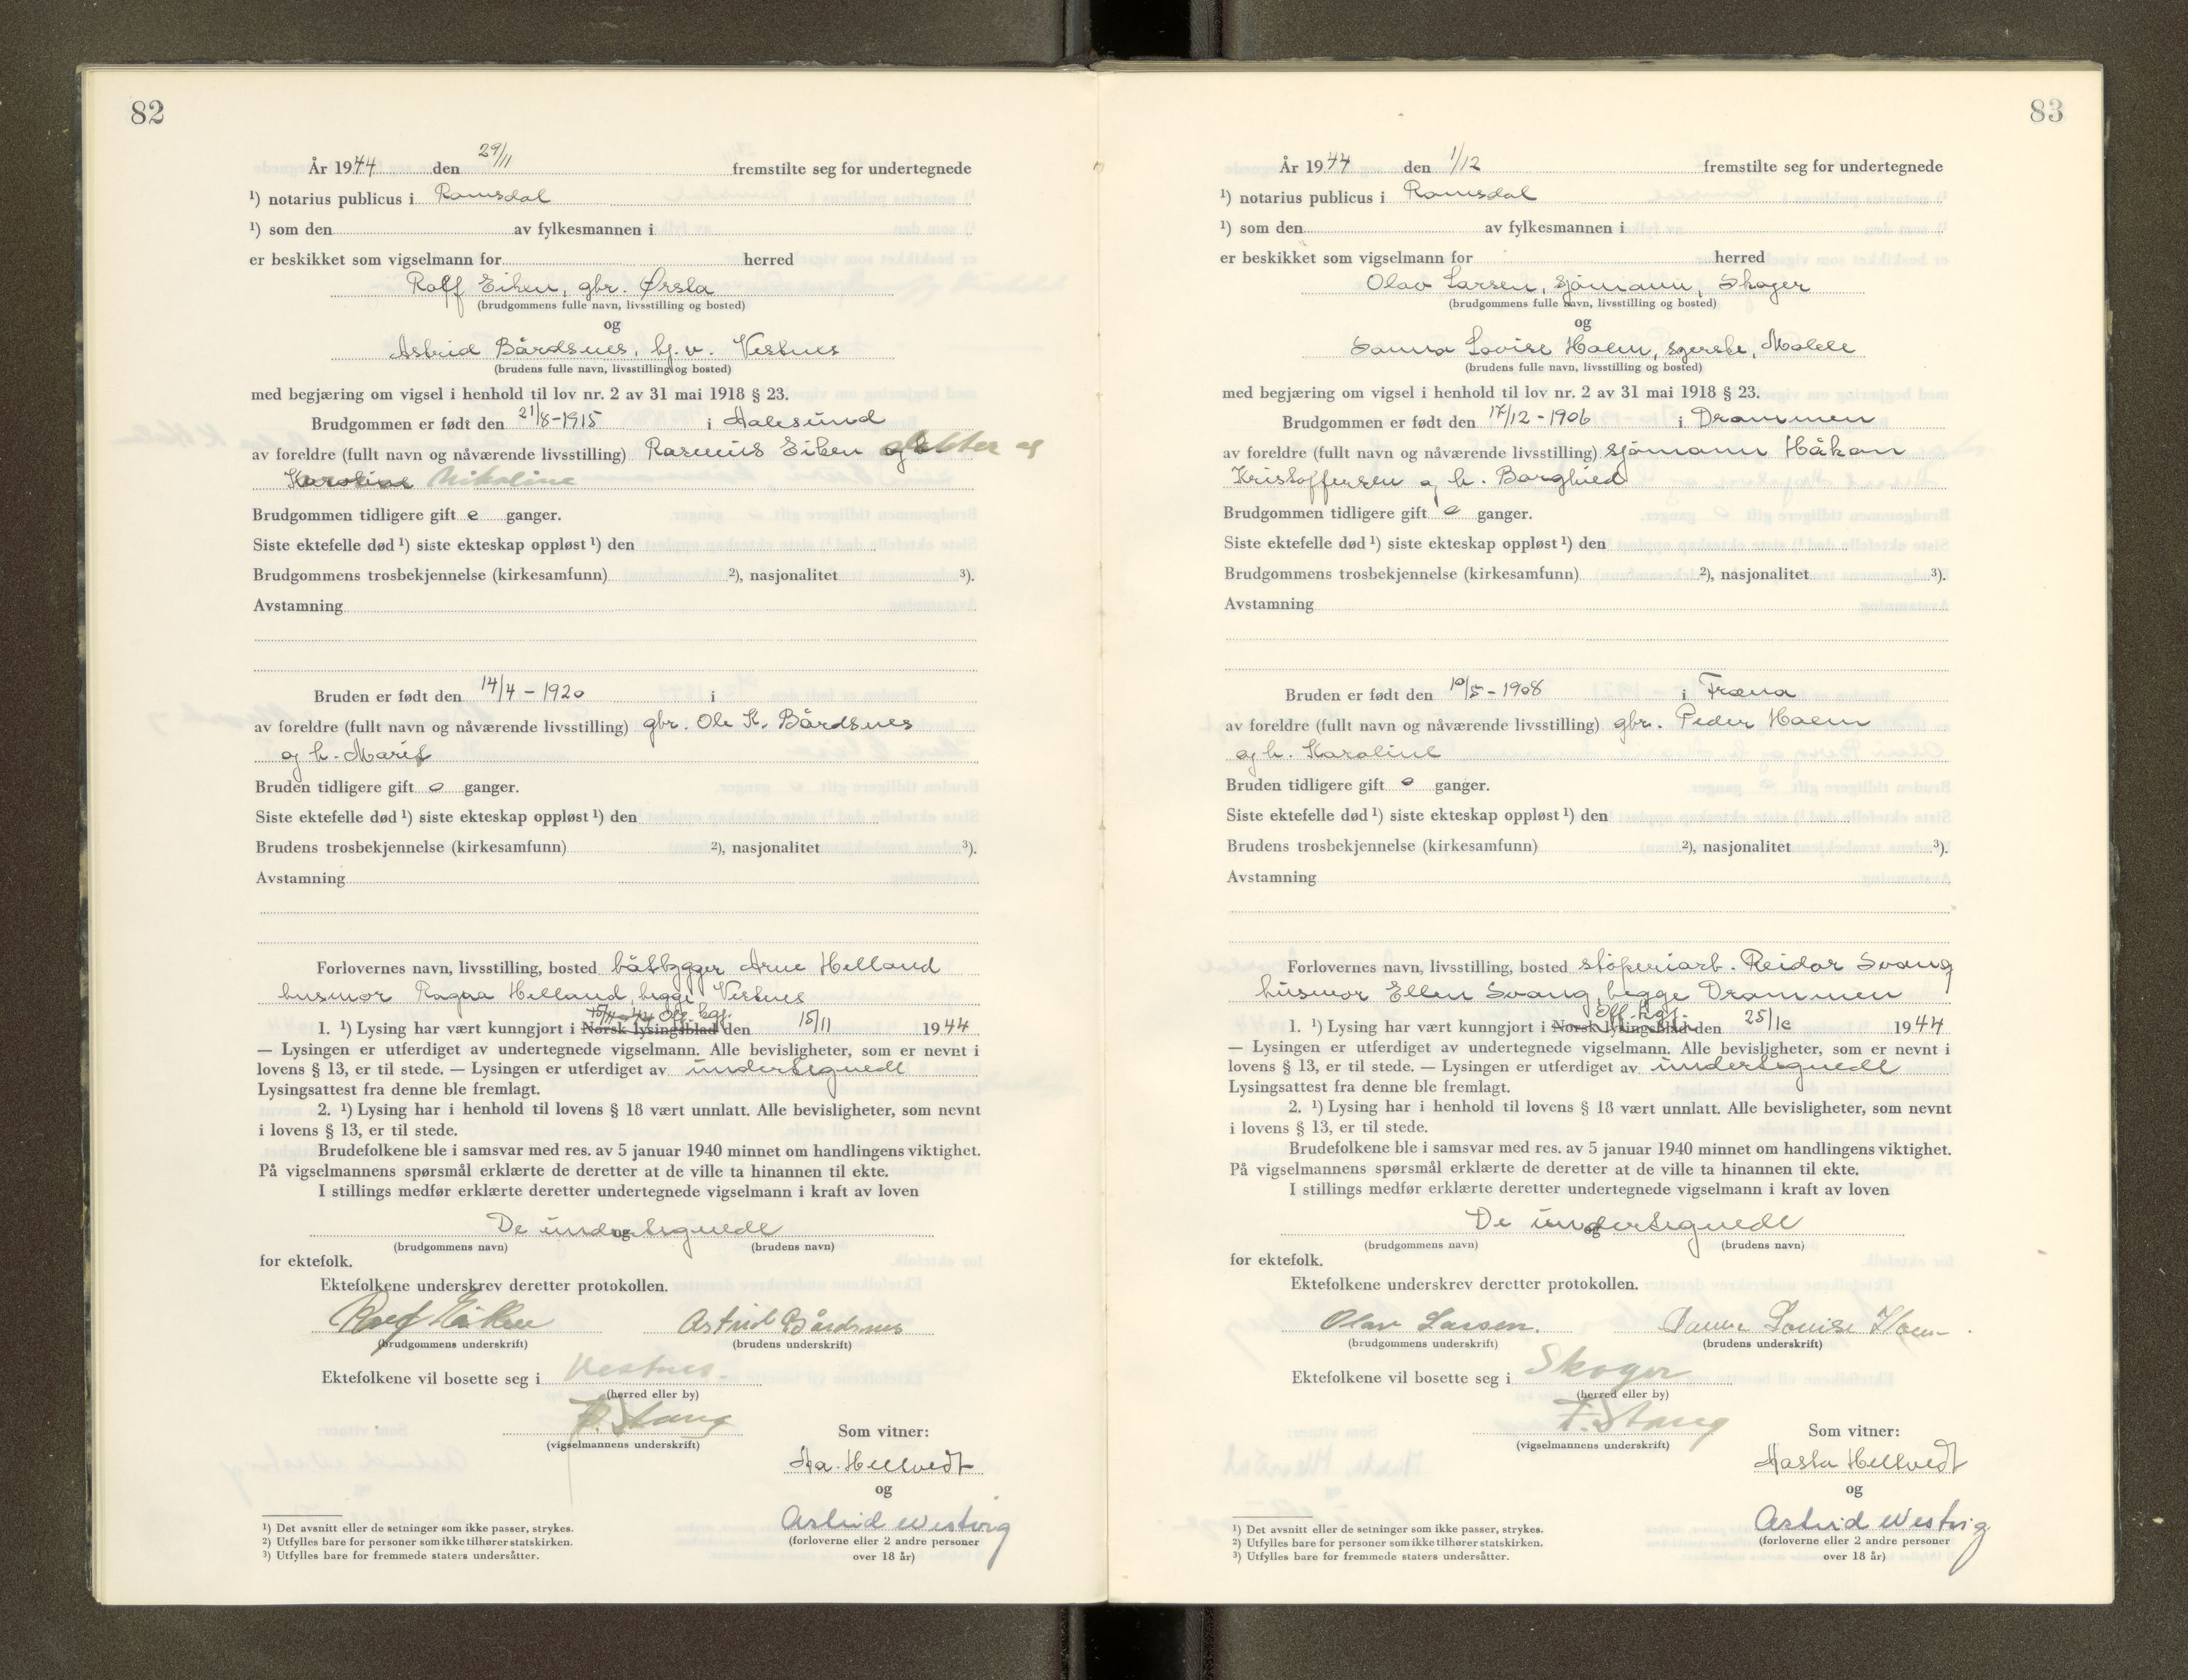 82
År 1944 den 29/11 fremstilte seg for undertegnede
¹) notarius publicus i Romsdal
¹) som den av fylkesmannen i
er beskikket som vigselmann for herred
Rolf Eiken, gbr. Ørsta
(brudgommens fulle navn, livsstilling og bosted)
og
Astrid Bårdsnes, hj.v. Vestnes
(brudens fulle navn, livsstilling og bosted)
med begjæring om vigsel i henhold til lov nr. 2 av 31 mai 1918 § 23.
Brudgommen er født den 21/8-1915 i Aalesund
av foreldre (fullt navn og nåværende livsstilling) Rasmus Eiken og
Karoline Nikoline
Brudgommen tidligere gift 0 ganger.
Siste ektefelle død ¹) siste ekteskap oppløst ¹) den
Brudgommens trosbekjennelse (kirkesamfunn) ²), nasjonalitet ³).
Avstamning
Bruden er født den 14/4 - 1920 i
av foreldre (fullt navn og nåværende livsstilling) gbr. Ole K. Bårdsnes
og h. Marie
Bruden tidligere gift 0 ganger.
Siste ektefelle død ¹) siste ekteskap oppløst ¹) den
Brudens trosbekjennelse (kirkesamfunn) ²), nasjonalitet ³).
Avstamning
Forlovernes navn, livsstilling, bosted båtbygger Arne Helland
husmor Ragna Helland, begge Vestnes
15/11-44 Off. kgj.
1. ¹) Lysing har vært kunngjort i Norsk lysingsblad den 15/11 1944
— Lysingen er utferdiget av undertegnede vigselmann. Alle bevisligheter, som er nevnt i
lovens § 13, er til stede. — Lysingen er utferdiget av undertegnede
Lysingsattest fra denne ble fremlagt.
2. ¹) Lysing har i henhold til lovens § 18 vært unnlatt. Alle bevisligheter, som nevnt
i lovens § 13, er til stede.
Brudefolkene ble i samsvar med res. av 5 januar 1940 minnet om handlingens viktighet.
På vigselmannens spørsmål erklærte de deretter at de ville ta hinannen til ekte.
I stillings medfør erklærte deretter undertegnede vigselmann i kraft av loven
De undertegnede
og
(brudgommens navn) (brudens navn)
for ektefolk.
Ektefolkene underskrev deretter protokollen.
Rolf Eiken Astrid Bårdsnes
(brudgommens underskrift) (brudens underskrift)
Ektefolkene vil bosette seg i Vestnes
(herred eller by)
F. Stang
(vigselmannens underskrift)
Som vitner:
Aa. Hellvedt
og
Astrid Westvig
(forloverne eller 2 andre personer
over 18 år)
¹) Det avsnitt eller de setninger som ikke passer, strykes.
²) Utfylles bare for personer som ikke tilhører statskirken.
³) Utfylles bare for fremmede staters undersåtter.
83
År 1944 den 1/12 fremstilte seg for undertegnede
¹) notarius publicus i Romsdal
¹) som den av fylkesmannen i
er beskikket som vigselmann for herred
Olav Larsen, sjømann, Skoger
(brudgommens fulle navn, livsstilling og bosted)
og
Sanna Lovise Hoem, syerske, Molde
(brudens fulle navn, livsstilling og bosted)
med begjæring om vigsel i henhold til lov nr. 2 av 31 mai 1918 § 23.
Brudgommen er født den 17/12 - 1906 i Drammen
av foreldre (fullt navn og nåværende livsstilling) sjømann Håkon
Kristoffersen og h. Borghild
Brudgommen tidligere gift 0 ganger.
Siste ektefelle død ¹) siste ekteskap oppløst ¹) den
Brudgommens trosbekjennelse (kirkesamfunn) ²), nasjonalitet ³).
Avstamning
Bruden er født den 10/5 - 1908 i Fræna
av foreldre (fullt navn og nåværende livsstilling) gbr. Peder Hoem
og h. Karoline
Bruden tidligere gift 0 ganger.
Siste ektefelle død ¹) siste ekteskap oppløst ¹) den
Brudens trosbekjennelse (kirkesamfunn) ²), nasjonalitet ³).
Avstamning
Forlovernes navn, livsstilling, bosted støperiarb. Reidar Svang
husmor Ellen Svang, begge Drammen
Off. kgj.
1. ¹) Lysing har vært kunngjort i Norsk lysingsblad den 25/10 1944
— Lysingen er utferdiget av undertegnede vigselmann. Alle bevisligheter, som er nevnt i
lovens § 13, er til stede. — Lysingen er utferdiget av undertegnede
Lysingsattest fra denne ble fremlagt.
2. ¹) Lysing har i henhold til lovens § 18 vært unnlatt. Alle bevisligheter, som nevnt
i lovens § 13, er til stede.
Brudefolkene ble i samsvar med res. av 5 januar 1940 minnet om handlingens viktighet.
På vigselmannens spørsmål erklærte de deretter at de ville ta hinannen til ekte.
I stillings medfør erklærte deretter undertegnede vigselmann i kraft av loven
De undertegnede
og
(brudgommens navn) (brudens navn)
for ektefolk.
Ektefolkene underskrev deretter protokollen.
Olav Larsen. Sanna Louise Hoem
(brudgommens underskrift) (brudens underskrift)
Ektefolkene vil bosette seg i Skoger
(herred eller by)
F. Stang
(vigselmannens underskrift)
Som vitner:
Aasta Hellvedt
og
Astrid Westvig
(forloverne eller 2 andre personer
over 18 år)
¹) Det avsnitt eller de setninger som ikke passer, strykes.
²) Utfylles bare for personer som ikke tilhører statskirken.
³) Utfylles bare for fremmede staters undersåtter.